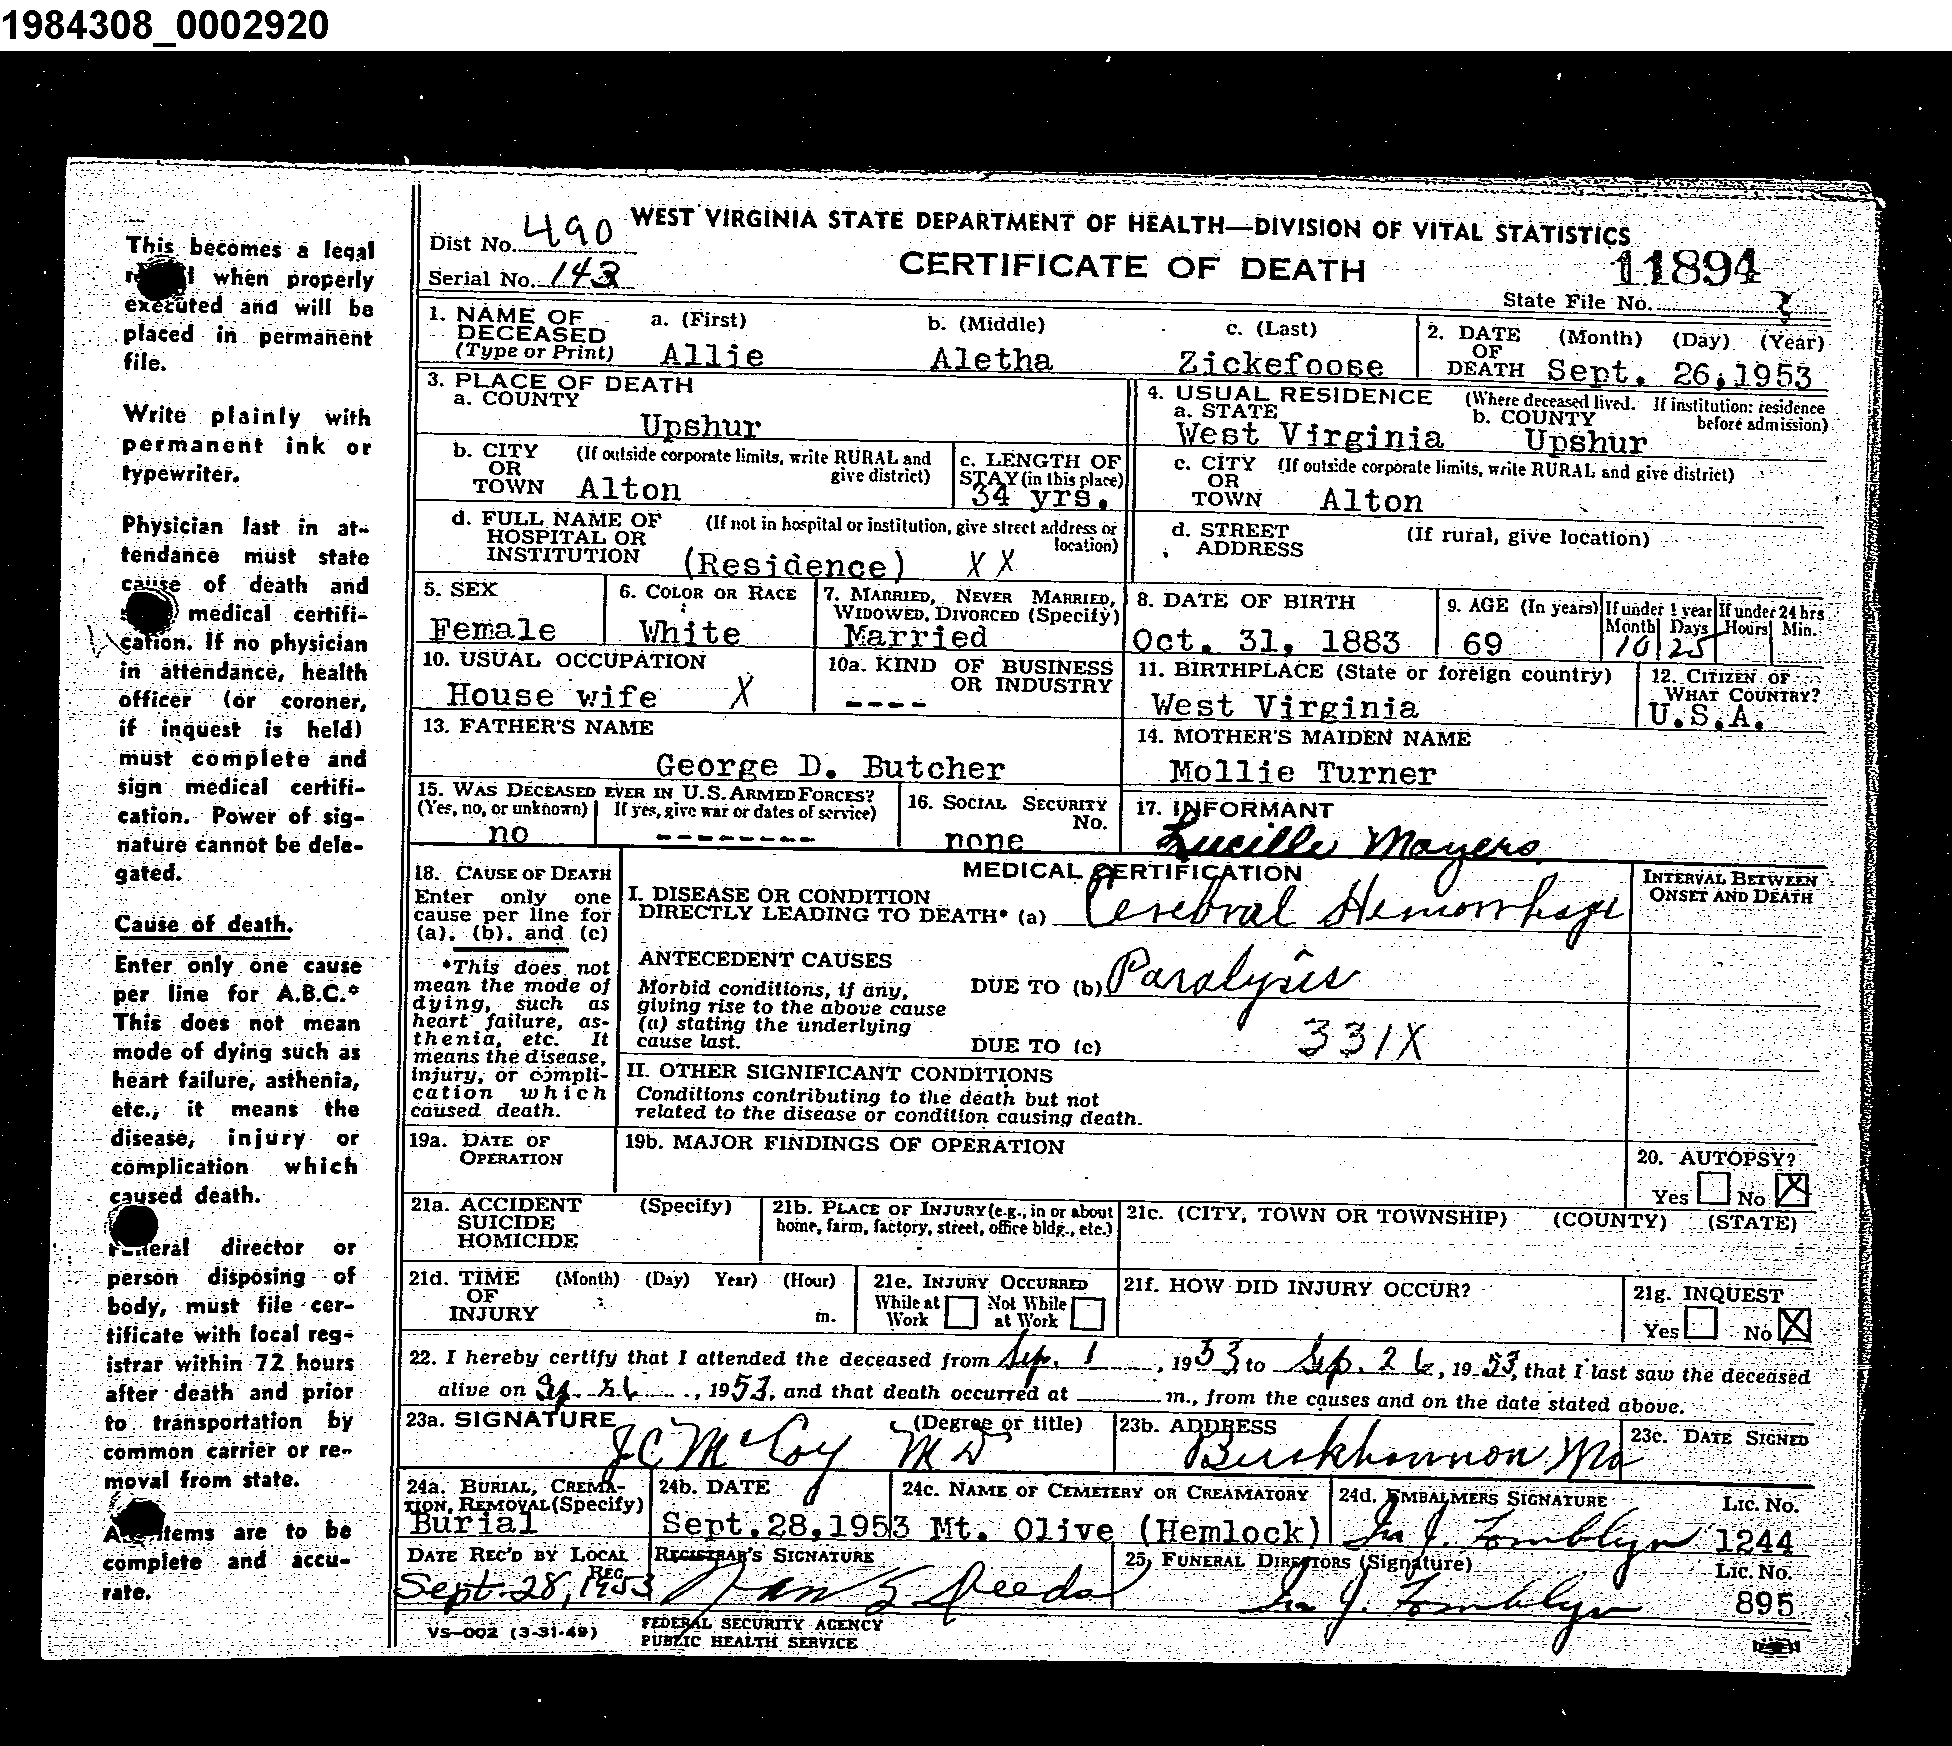 1984308_0002920
WEST VIRGINIA STATE DEPARTMENT OF HEALTH—DIVISION OF VITAL STATISTICS
Dist No. 490
Serial No. 143
CERTIFICATE OF DEATH
11894
State File No.
This becomes a legal
when properly
executed and will be
placed in permanent
file.
Write plainly with
permanent ink or
typewriter.
Physician last in at-
tendance must state
cause of death and
medical certifi-
cation. If no physician
in attendance, health
officer (or coroner,
if inquest is held)
must complete and
sign medical certifi-
cation. Power of sig-
nature cannot be dele-
gated.
Cause of death.
Enter only one cause
per line for A.B.C.*
This does not mean
mode of dying such as
heart failure, asthenia,
etc., it means the
disease, injury or
complication which
caused death.
Funeral director or
person disposing of
body, must file cer-
tificate with local reg-
istrar within 72 hours
after death and prior
to transportation by
common carrier or re-
moval from state.
items are to be
complete and accu-
rate.
1. NAME OF DECEASED (Type or Print) a. (First) Allie b. (Middle) Aletha c. (Last) Zickefoose
2. DATE OF DEATH (Month) (Day) (Year) Sept. 26, 1953
3. PLACE OF DEATH
a. COUNTY Upshur
b. CITY OR TOWN (If outside corporate limits, write RURAL and give district) Alton
c. LENGTH OF STAY (in this place) 34 yrs.
d. FULL NAME OF HOSPITAL OR INSTITUTION (If not in hospital or institution, give street address or location) (Residence) X X
4. USUAL RESIDENCE (Where deceased lived. If institution: residence before admission)
a. STATE West Virginia b. COUNTY Upshur
c. CITY OR TOWN (If outside corporate limits, write RURAL and give district) Alton
d. STREET ADDRESS (If rural, give location)
5. SEX Female
6. COLOR OR RACE White
7. MARRIED, NEVER MARRIED, WIDOWED, DIVORCED (Specify) Married
8. DATE OF BIRTH Oct. 31, 1883
9. AGE (In years) 69 If under 1 year Month 10 Days 25 If under 24 hrs Hours Min.
10. USUAL OCCUPATION House wife X
10a. KIND OF BUSINESS OR INDUSTRY ----
11. BIRTHPLACE (State or foreign country) West Virginia
12. CITIZEN OF WHAT COUNTRY? U.S.A.
13. FATHER'S NAME George D. Butcher
14. MOTHER'S MAIDEN NAME Mollie Turner
15. WAS DECEASED EVER IN U.S. ARMED FORCES? (Yes, no, or unknown) no If yes, give war or dates of service) --------
16. SOCIAL SECURITY No. none
17. INFORMANT Lucille Mayers
18. CAUSE OF DEATH
Enter only one
cause per line for
(a), (b), and (c)
*This does not
mean the mode of
dying, such as
heart failure, as-
thenia, etc. It
means the disease,
injury, or compli-
cation which
caused death.
MEDICAL CERTIFICATION
INTERVAL BETWEEN ONSET AND DEATH
I. DISEASE OR CONDITION DIRECTLY LEADING TO DEATH* (a) Cerebral Hemorrhage
ANTECEDENT CAUSES
Morbid conditions, if any,
giving rise to the above cause
(a) stating the underlying
cause last.
DUE TO (b) Paralysis
DUE TO (c) 331X
II. OTHER SIGNIFICANT CONDITIONS
Conditions contributing to the death but not
related to the disease or condition causing death.
19a. DATE OF OPERATION
19b. MAJOR FINDINGS OF OPERATION
20. AUTOPSY? Yes No X
21a. ACCIDENT SUICIDE HOMICIDE (Specify)
21b. PLACE OF INJURY (e.g., in or about home, farm, factory, street, office bldg., etc.)
21c. (CITY, TOWN OR TOWNSHIP) (COUNTY) (STATE)
21d. TIME OF INJURY (Month) (Day) Year) (Hour) m.
21e. INJURY OCCURRED While at Work Not While at Work
21f. HOW DID INJURY OCCUR?
21g. INQUEST Yes No X
22. I hereby certify that I attended the deceased from Sep. 1, 1953, to Sep. 26, 1953, that I last saw the deceased
alive on Sep. 26, 1953, and that death occurred at m., from the causes and on the date stated above.
23a. SIGNATURE (Degree or title) J C McCoy MD
23b. ADDRESS Buckhannon
23c. DATE SIGNED
24a. BURIAL, CREMATION, REMOVAL (Specify) Burial
24b. DATE Sept.28,1953
24c. NAME OF CEMETERY OR CREAMATORY Mt. Olive (Hemlock)
24d. EMBALMERS SIGNATURE J. Tomblyn Lic. No. 1244
DATE REC'D BY LOCAL REG. Sept. 28, 1953
REGISTRAR'S SIGNATURE
25. FUNERAL DIRECTORS (Signature) J. Tomblyn Lic. No. 895
VS-002 (3-31-49)
FEDERAL SECURITY AGENCY
PUBLIC HEALTH SERVICE